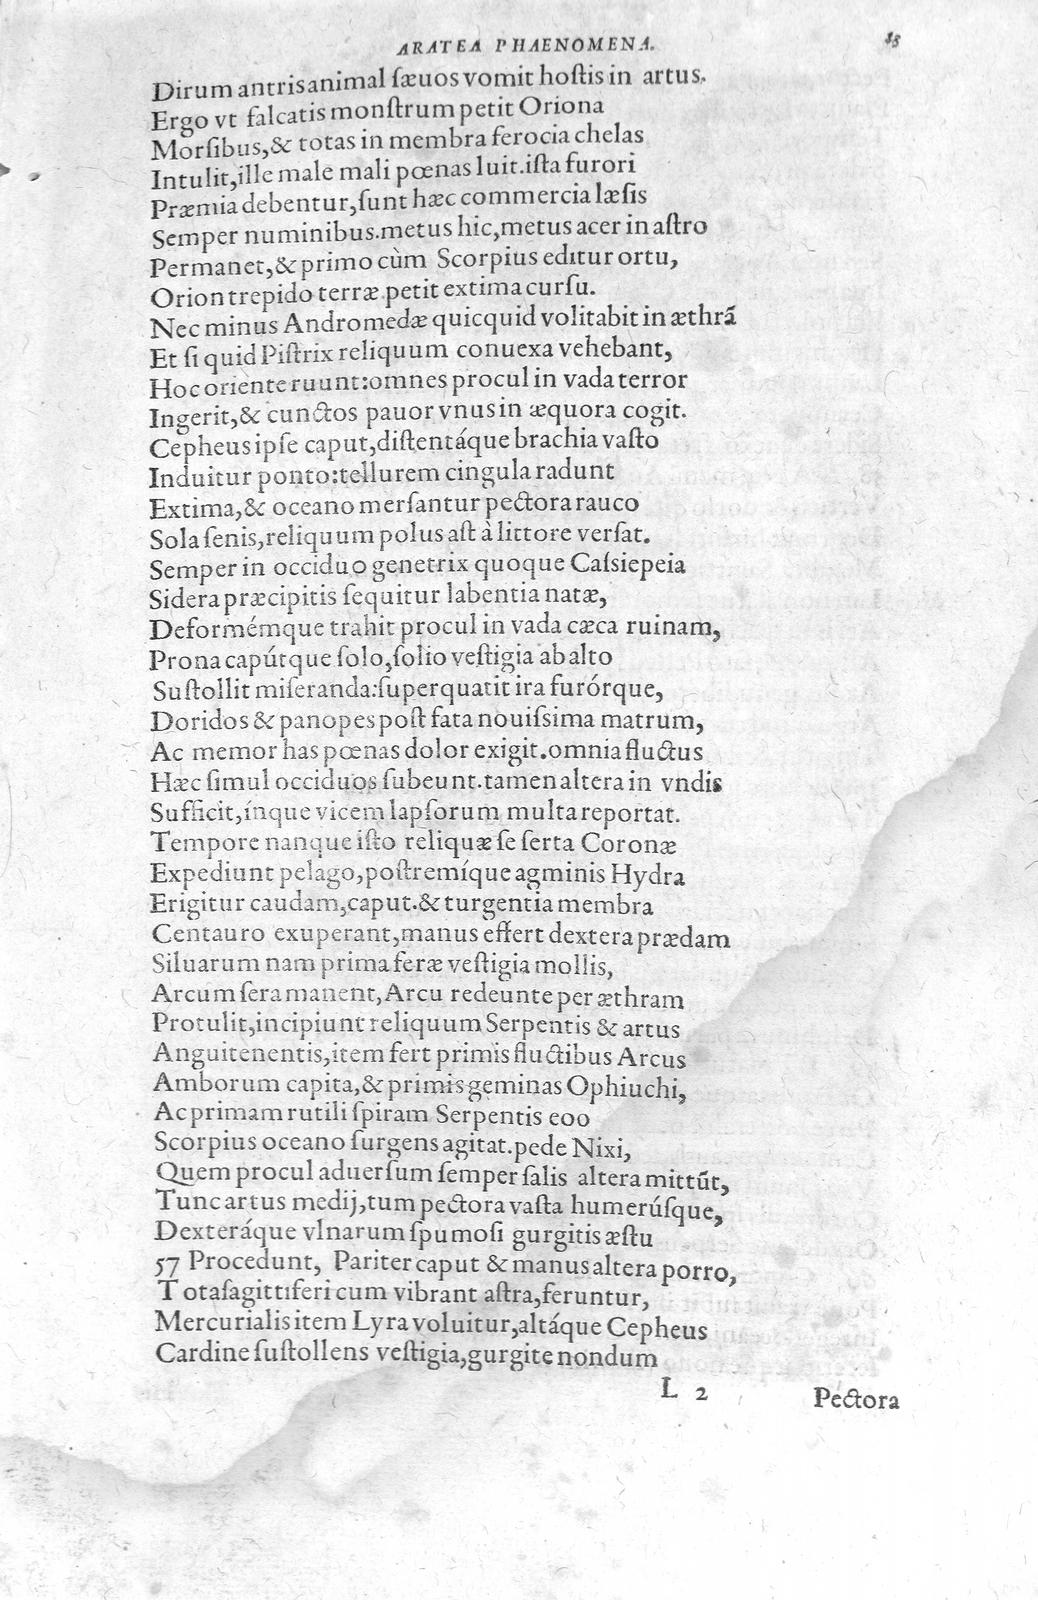 ARATEA PHAENOMENA. 83
Dirum antris animal sæuos vomit hostis in artus.
Ergo vt falcatis monstrum petit Oriona
Morsibus,& totas in membra ferocia chelas
Intulit,ille male mali pœnas luit.ista furori
Præmia debentur,sunt hæc commercia læsis
Semper numinibus.metus hic,metus acer in astro
Permanet,& primo cùm Scorpius editur ortu,
Orion trepido terræ petit extima cursu.
Nec minus Andromedæ quicquid volitabit in æthrã
Et si quid Pistrix reliquum conuexa vehebant,
Hoc oriente ruunt:omnes procul in vada terror
Ingerit,& cunctos pauor vnus in æquora cogit.
Cepheus ipse caput,distentáque brachia vasto
Induitur ponto:tellurem cingula radunt
Extima,& oceano mersantur pectora rauco
Sola senis,reliquum polus ast à littore versat.
Semper in occiduo genetrix quoque Cassiepeia
Sidera præcipitis sequitur labentia natæ,
Deformémque trahit procul in vada cæca ruinam,
Prona capútque solo,solio vestigia ab alto
Sustollit miseranda:superquatit ira furórque,
Doridos & panopes post fata nouissima matrum,
Ac memor has pœnas dolor exigit.omnia fluctus
Hæc simul occiduos subeunt.tamen altera in vndis
Sufficit,ínque vicem lapsorum multa reportat.
Tempore nanque isto reliquæ se serta Coronæ
Expediunt pelago,postremíque agminis Hydra
Erigitur caudam,caput.& turgentia membra
Centauro exuperant,manus effert dextera prædam
Siluarum nam prima feræ vestigia mollis,
Arcum sera manent,Arcu redeunte per æthram
Protulit,incipiunt reliquum Serpentis & artus
Anguitenentis,item fert primis fluctibus Arcus
Amborum capita,& primis geminas Ophiuchi,
Ac primam rutili spiram Serpentis eoo
Scorpius oceano surgens agitat.pede Nixi,
Quem procul aduersum semper salis altera mittũt,
Tunc artus medij,tum pectora vasta humerúsque,
Dexteráque vlnarum spumosi gurgitis æstu
57 Procedunt, Pariter caput & manus altera porro,
Tota sagittiferi cum vibrant astra,feruntur,
Mercurialis item Lyra voluitur,altáque Cepheus
Cardine sustollens vestigia,gurgite nondum
L 2 Pectora